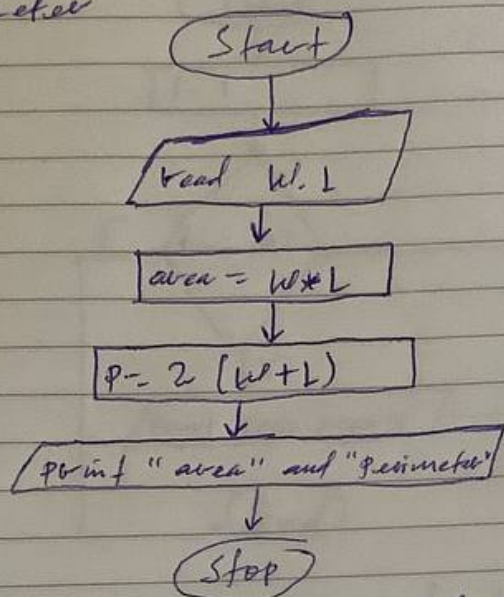 Start
read W. L
area = W*L
P = 2 (W+L)
print "area" and "Perimeter"
Stop